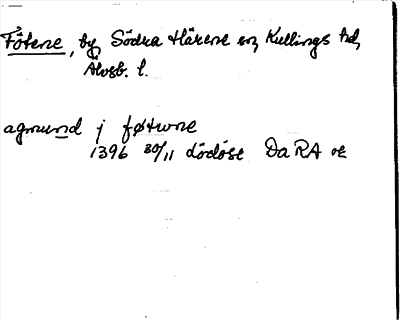 Fötene, by Södra Härene sn, Kullings hd,
Älvsb. l.
agmund j føtwne
1396 30/11 dödöse DaRA or